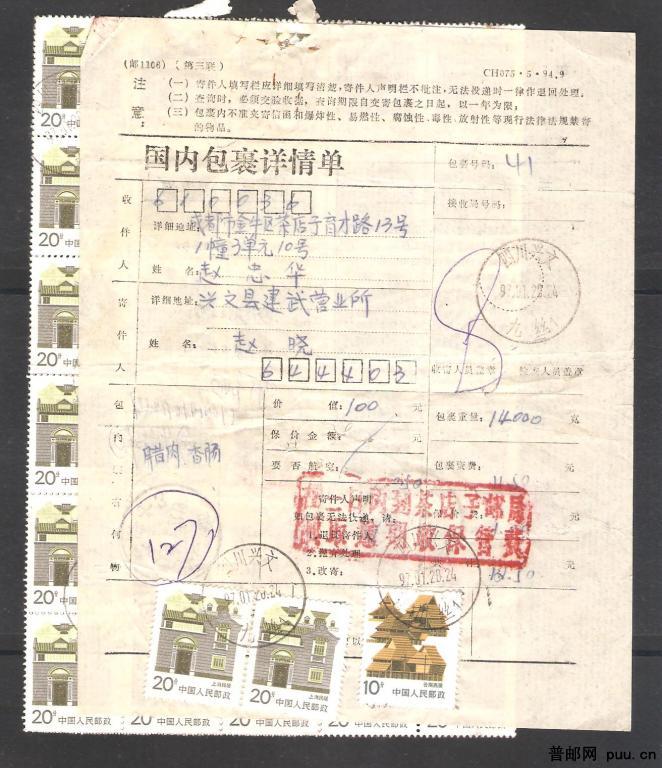 (邮1106)(第三联)
CH075·5·94.9
注意:
(一)寄件人填写栏应详细填写清楚,寄件人声明栏不批注,无法投递时一律作退回处理。
(二)查询时,必须交验收据,查询期限自交寄包裹之日起,以一年为限;
(三)包裹内不准夹寄信函和爆炸性、易燃性、腐蚀性、毒性、放射性等现行法律法规禁寄
的物品。
国内包裹详情单
包裹号码:41
接收局号码:
收件人
610036
详细地址:成都市金牛区茶店子育才路13号
11幢3单元10号
姓名:赵忠华
四川兴文
97.01.20.24
九丝1
寄件人
详细地址:兴文县建武营业所
姓名:赵晓
644403
收寄人员盖章
包内装有何物
腊肉.香肠
价值:100元
保价金额:元
要否航空:
包裹重量:14000克
包裹资费:元
寄件人声明
如包裹无法投递,请:
1.退回寄件人
2.抛弃处理
3.改寄:
127
四川兴文
97.01.20.24
九丝1
20分
中国人民邮政
上海民居
20分
中国人民邮政
上海民居
10分
中国人民邮政
云南民居
20分 中国人民邮政
普邮网 puu.cn